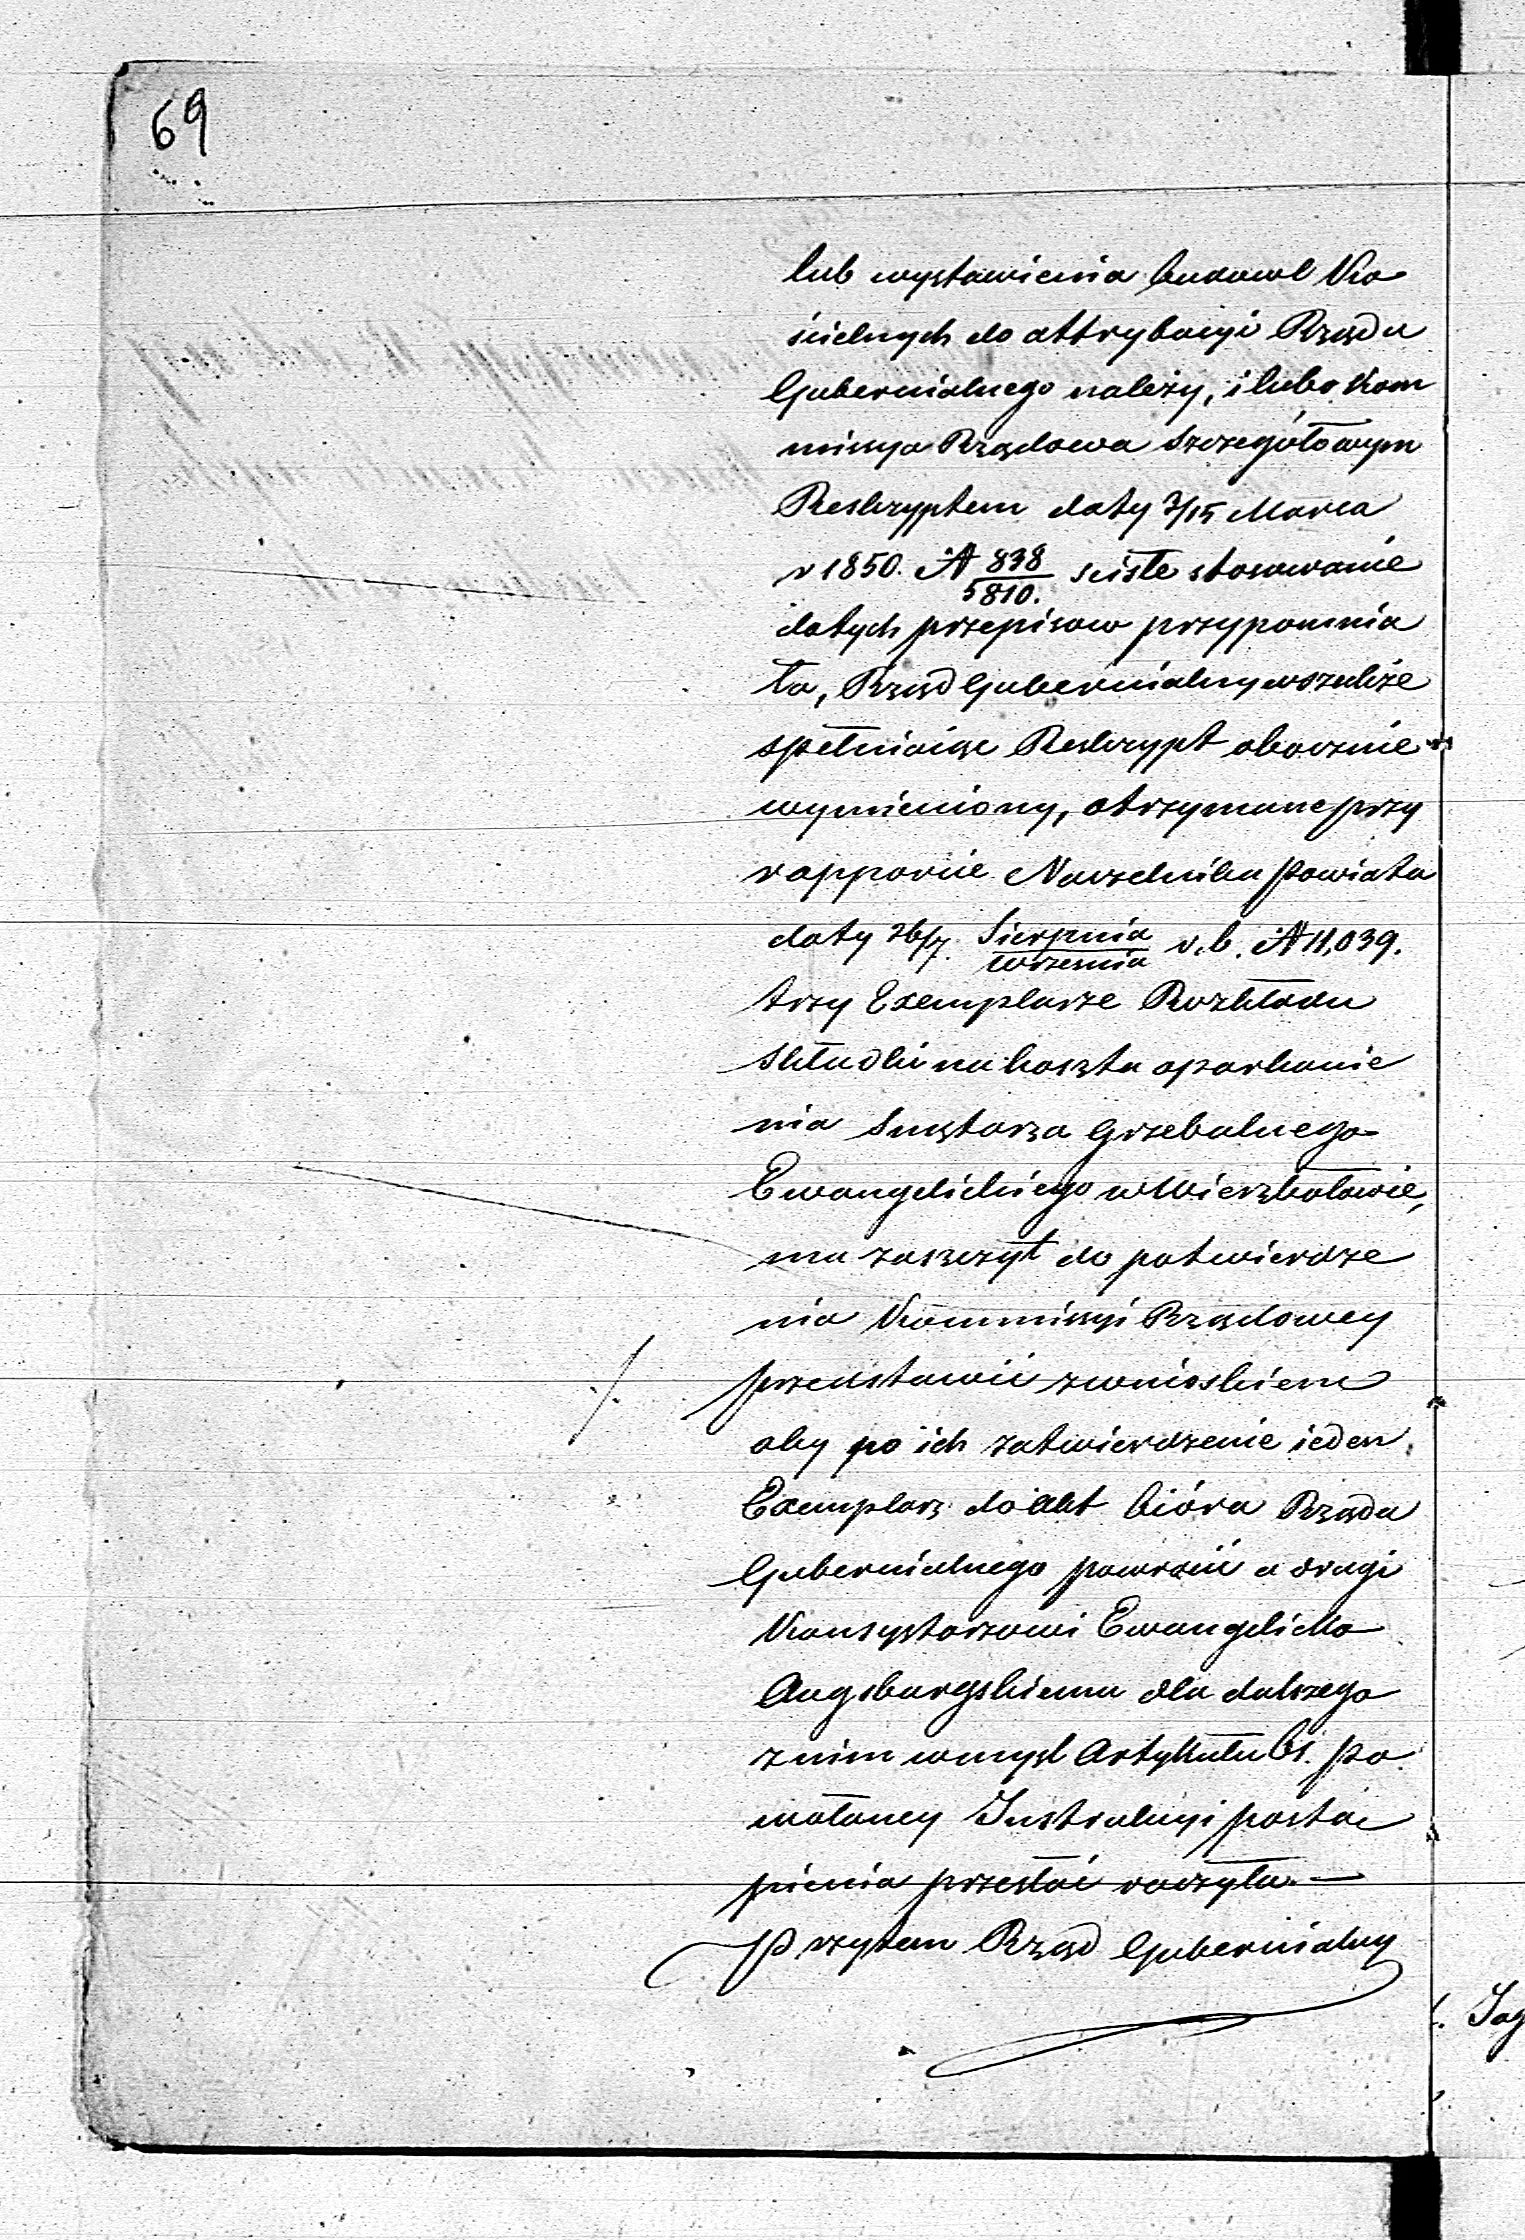 69
lub wystawienia budowl Ko
ścielnych do attrybucyi Rządu
Gubernialnego należy, i lubo Kom
missya Rządowa szczegółowym
Reskryptem daty 3/15 Marca
r 1850. № 838/5810. sciste stosowanie
do tych przepisow przypomnia
ła, Rząd Gubernialny wszakże
spełniaiąc Reskrypt obocznie
wymieniony, otrzymane przy
rapporcie Naczelnika Powiatu
daty 26/7. Sierpnia/Września r. b. № 11,039.
trzy Exemplarze Rozkładu
Składki na koszta oparkanie
nia Smętarza Grzebalnego
Ewangelickiego w Wierzbołowie,
ma zaszczyt do potwierdze
nia Kommissyi Rządowey
przedstawić z wnioskiem
aby po ich zatwierdzenie ieden
Exemplarz do Akt Bióra Rządu
Gubernialnego powrócić a drugi
Konsystorzowi Ewangelicko
Augsburgskiemu dla dalszego
z nim w mysl Artykułu 61. Po
wołaney Instrukcyi postą
pienia przesłać raczyła. —
Przytem Rząd Gubernialny